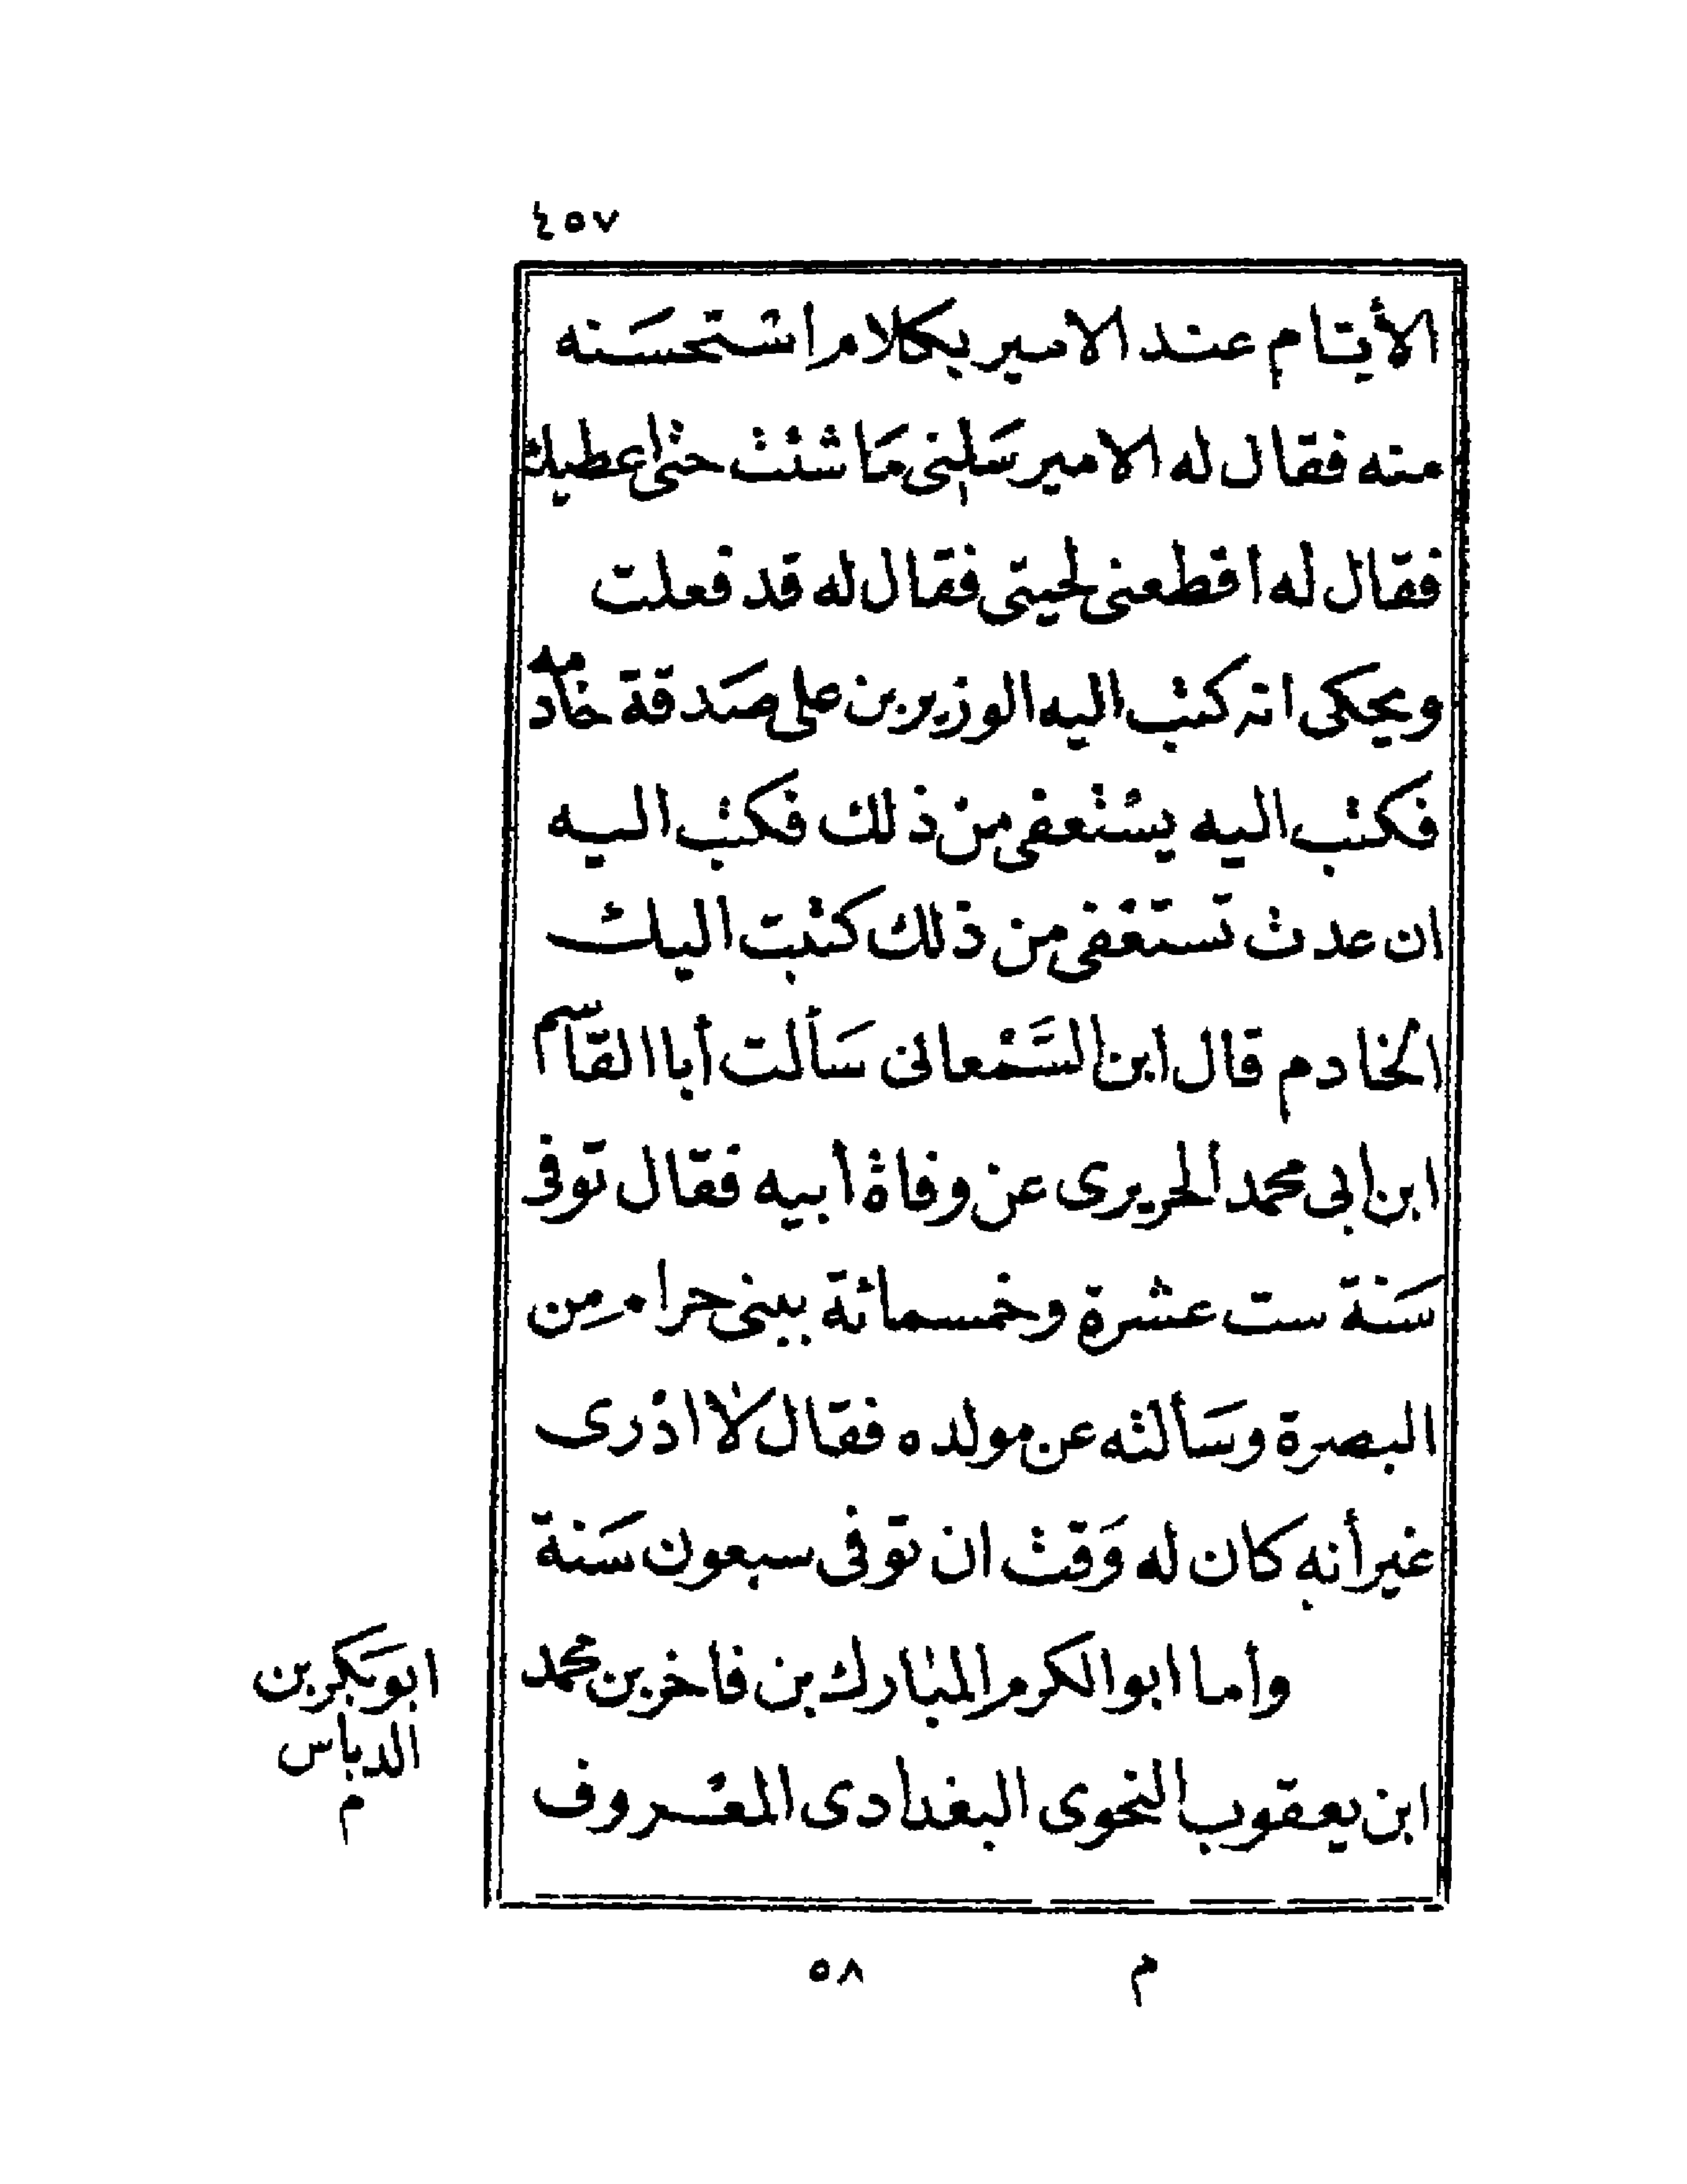 ٤٥٧
الأيام عند الامير بكلام استحسنه
منه فقال له الامير سلني ما شئت حتى اعطيك
فقال له اقطعنى لحيتى فقال له قد فعلت
ويحكى انه كتب اليه الوزير بن على صدقة خادمه
فكتب اليه يستعفى من ذلك فكتب اليه
ان عدت تستعفى من ذلك كتبت اليك
الخادم قال ابن السمعانى سألت أبا القاسم
ابن ابى محمد الحريرى عن وفاة أبيه فقال توفى
سنة ست عشرة وخمسمائة ببنى حرام من
البصرة وسألته عن مولده فقال لا ادرى
غير أنه كان له وقت ان توفى سبعون سنة
وأما ابو الكرم المبارك بن فاخر بن محمد
ابن يعقوب النحوى البغدادى المعروف
ابو بكر بن
الدباس
م
م ٥٨